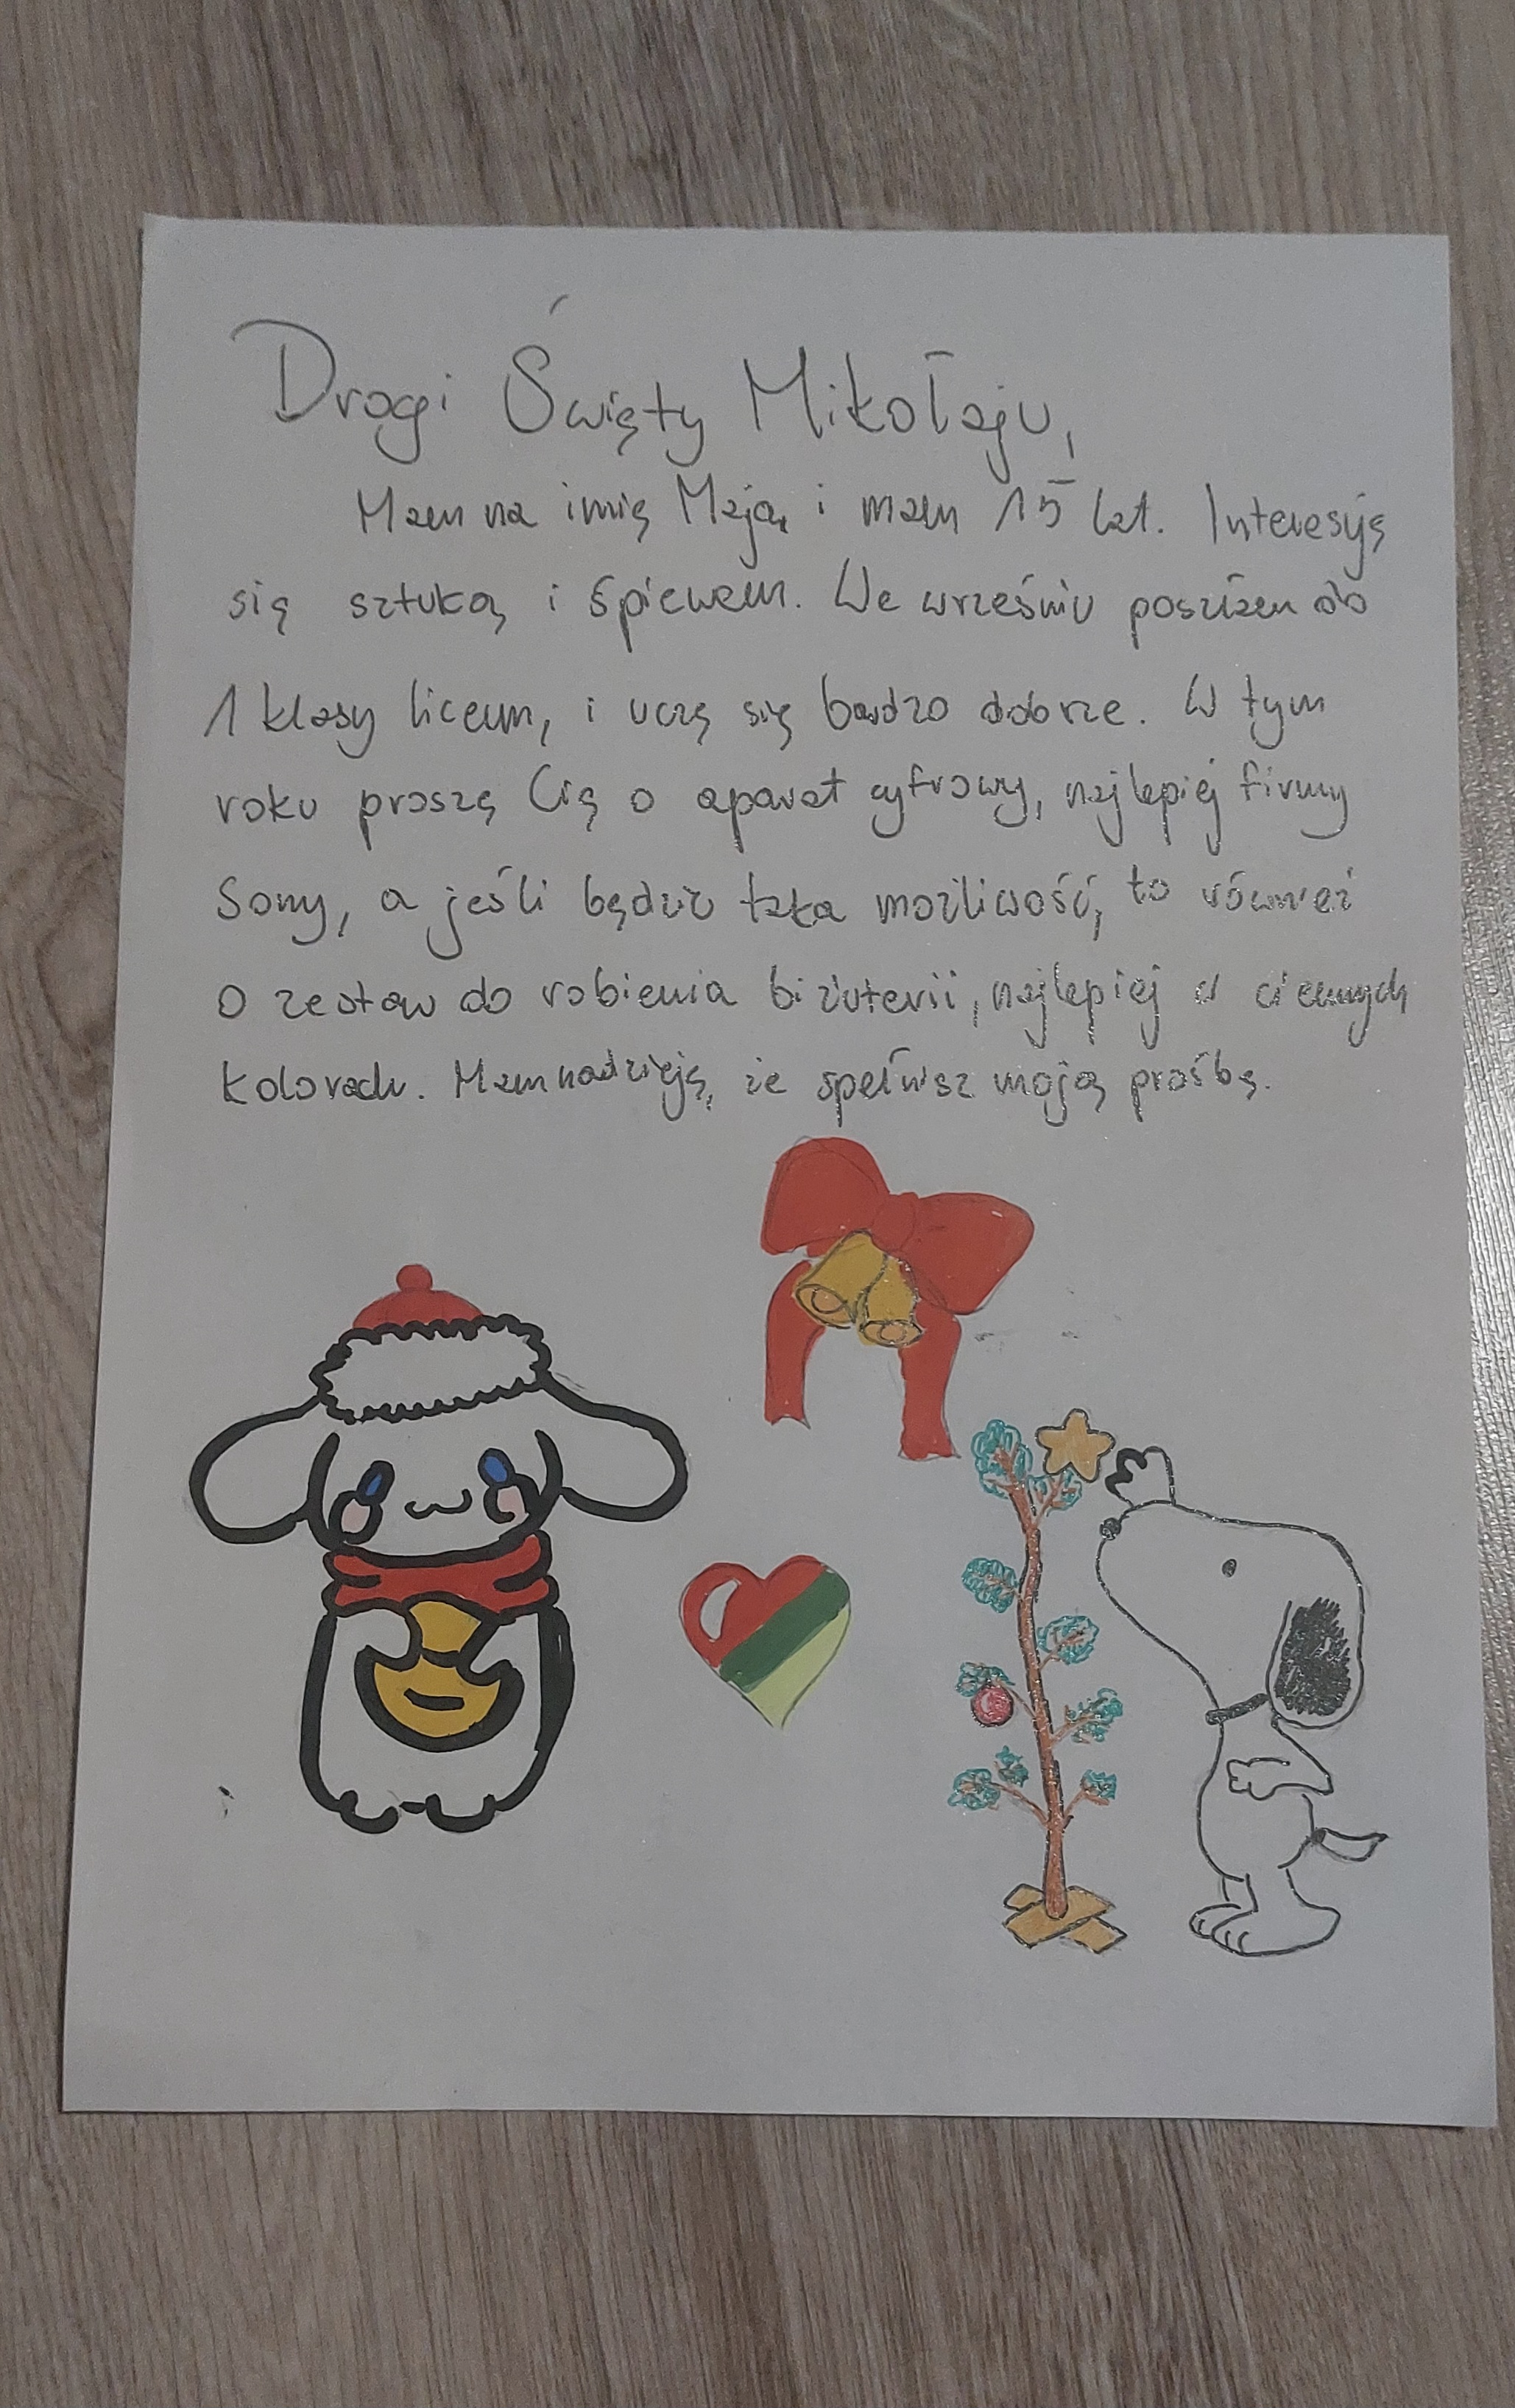 Drogi Święty Mikołaju,
Mam na imię Maja, i mam 15 lat. Interesuję
się sztuką i śpiewem. We wrześniu poszłam do
1 klasy liceum, i uczę się bardzo dobrze. W tym
roku proszę Cię o aparat cyfrowy, najlepiej firmy
Sony, a jeśli będzie taka możliwość, to również
o zestaw do robienia biżuterii, najlepiej w ciemnych
kolorach. Mam nadzieję, że spełnisz moją prośbę.